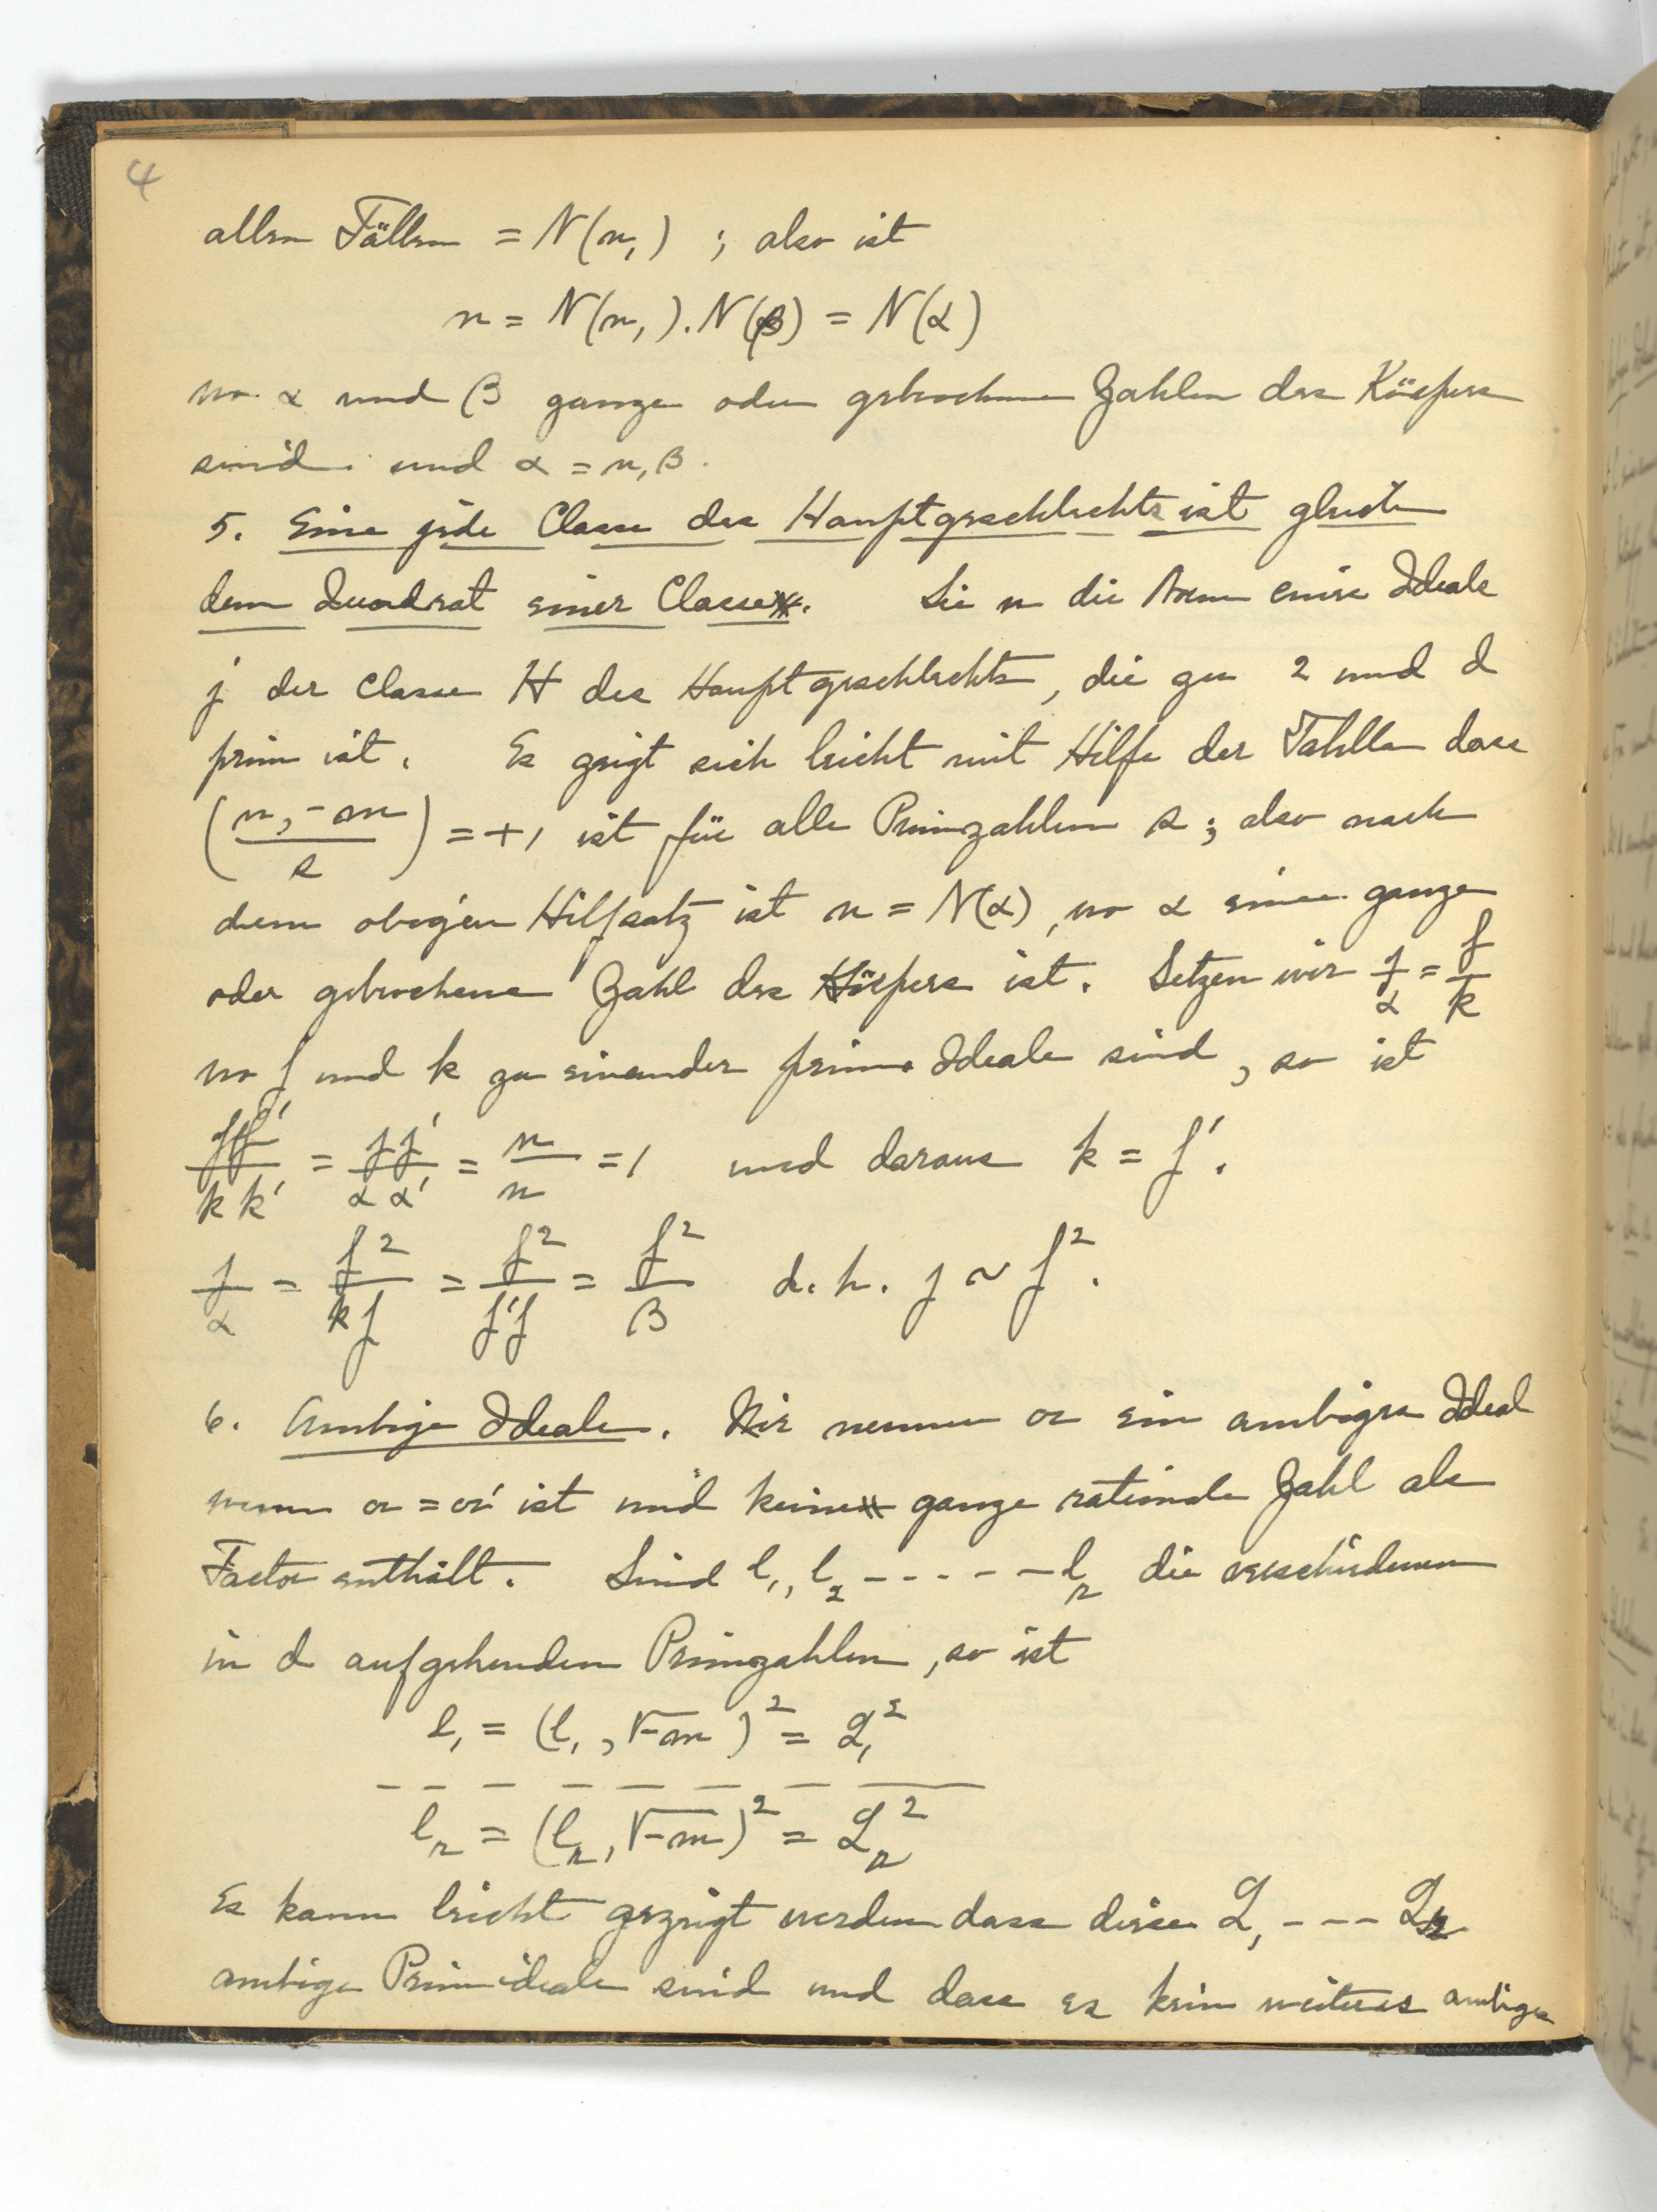 4
allen Fällen = N(n₁) ; also ist
n = N(n₁).N(β) = N(α)
wo α und β ganze oder gebrochene Zahlen des Körpers
sind. und α = n₁β.
5. Eine jede Classe des Hauptgeschlechts ist gleich
dem Quadrat einer Classe. Sei n die Norm eines Ideals
j der Classe H des Hauptgeschlechts, die zu 2 und d
prim ist. Es zeigt sich leicht mit Hilfe der Tabelle dass
((n, -m)/s) = +1 ist für alle Primzahlen s; also nach
dem obigen Hilfsatz ist n = N(α), wo α eine ganze
oder gebrochene Zahl des Körpers ist. Setzen wir j/α = f/k
wo f und k zu einander prime Ideale sind, so ist
ff′/kk′ = jj′/αα′ = n/n = 1 und daraus k = f′.
j/α = f²/kf = f²/f′f = f²/β d.h. j ~ f².
6. Ambige Ideale. Wir nennen a ein ambiges Ideal
wenn a = a′ ist und keine ganze rationale Zahl als
Factor enthält. Sind l₁, l₂ - - - - - lᵣ die verschiedenen
in d aufgehenden Primzahlen, so ist
l₁ = (l₁, √-m)² = L₁²
- - - - - - - -
lᵣ = (lᵣ, √-m)² = Lᵣ²
Es kann leicht gezeigt werden dass diese L₁ - - - Lᵣ
ambige Primideale sind und dass es kein weiteres ambiges